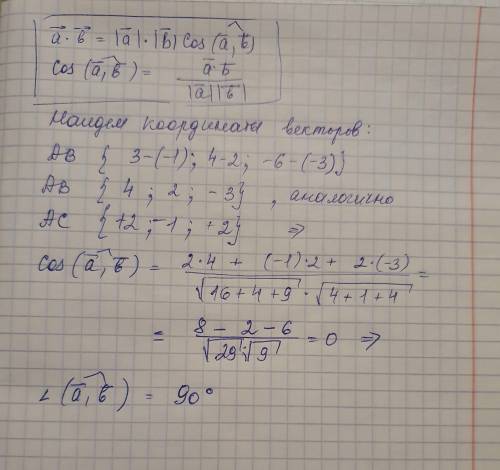 a⃗ · b⃗ = |a̅| · |b̅| cos (a̅, b̅)
cos (a̅, b̅) = a̅ · b̅ / |a̅||b̅|
Найдем координаты векторов:
AB { 3-(-1); 4-2; -6-(-3)}
AB { 4 ; 2 ; -3} , аналогично
AC {+2; -1; +2} ⇒
cos (a̅, b̅) = 2·4 + (-1)·2 + 2·(-3) / √16+4+9 · √4+1+4 =
= 8 - 2 - 6 / √29 · √9 = 0 ⇒
∠ (a̅, b̅) = 90°